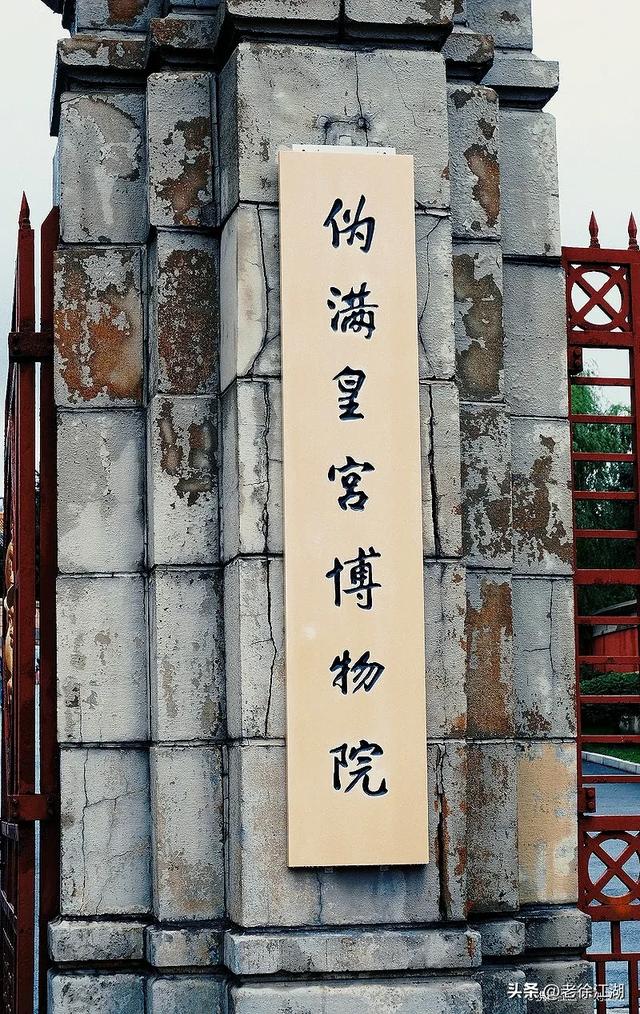 伪满皇宫博物院
头条 @老徐江湖